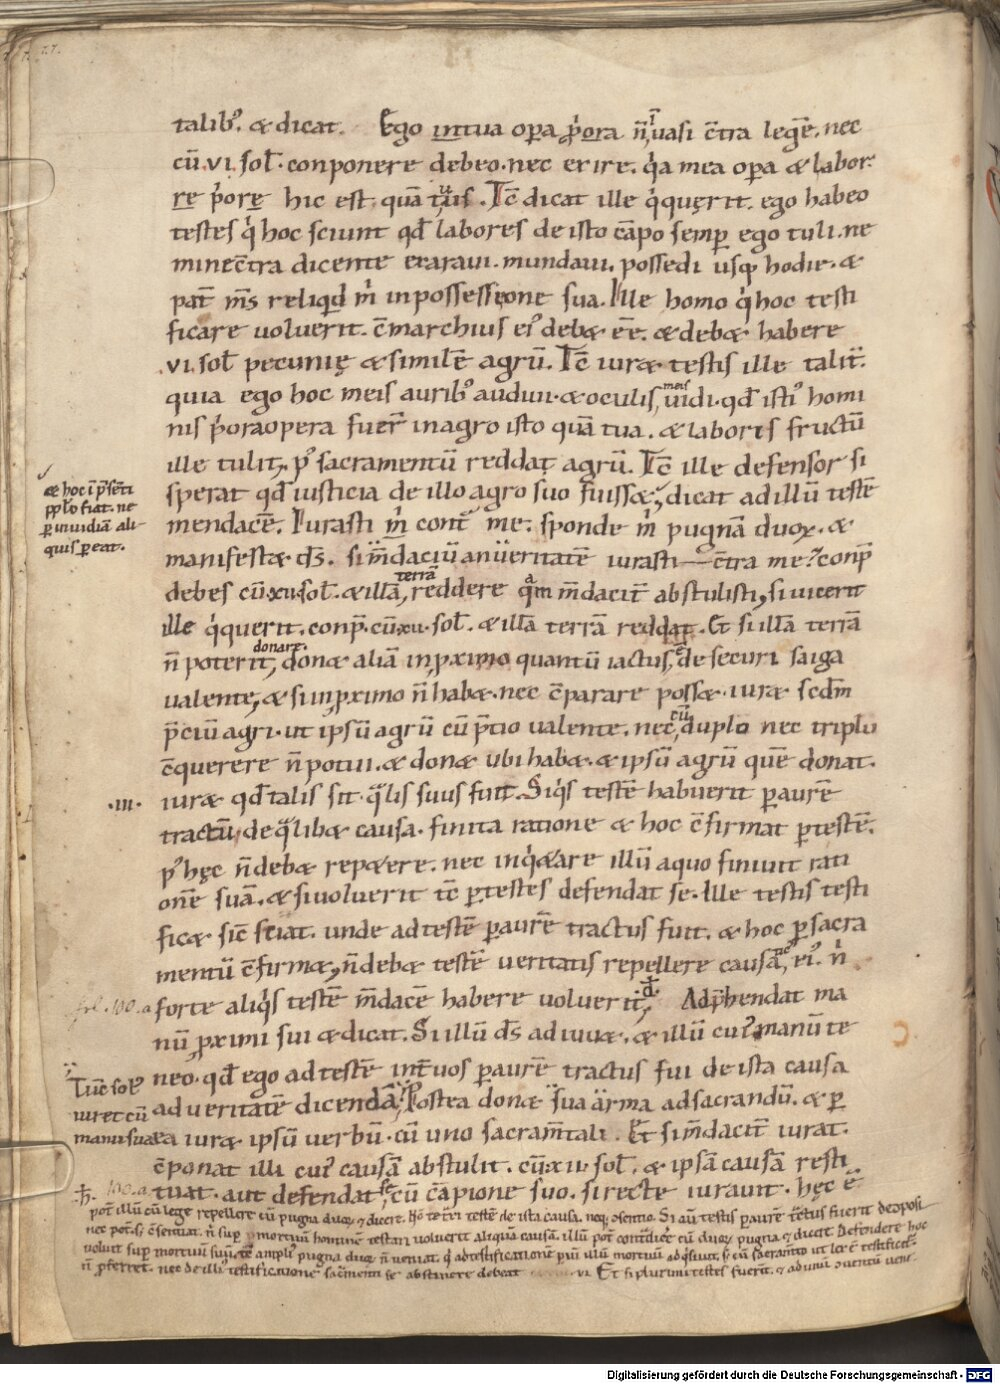 talib᷒. & dicat. Ego in tua opa p̍ora n̄ uasi c̄tra legē. nec
cū .vi. sol̄. conponere debeo. nec exire. q̍a mea opa & labor
re p̍orę hic est quā tuis. Tc̄ dicat ille q̍ quęrit. ego habeo
testes q̍ hoc sciunt qd̄ labores de isto cāpo semp ego tuli. ne
mine c̄tra dicente exaraui. mundaui. possedi usq; hodie. &
pat̄ m̄s reliqd m̍ in possessione sua. Ille homo q̍ hoc testi
ficare uoluerit. c̄marchius ei᷒ deb& ēē. & deb& habere
.vi. sol̄ pecunię & similē agrū. Tc̄ iur& testis ille talit̄.
quia ego hoc meis aurib᷒ audiui. & oculis meis uidi. qd̄ isti᷒ homi
nis p̍ora opera fuer̄ in agro isto quā tua. & laboris fructū
ille tulit, p᷒ sacramentū reddat agrū. Tc̄ ille defensor si
sperat qd̄ iusticia de illo agro suo fuiss&, dicat ad illū testē
mendacē. Iurasti m̍ cont̄ me. sponde m̍ pugnā duoꝝ. &
manifest& ds̄. si m̄daciū an ueritatē iurasti c̄tra me? conp̄
debes cū .xii. sol̄. & illā terrā reddere quā m̄dacit̄ abstulisti, si uicerit
ille q̍ querit. conp̄. cū .xii. sol̄. & illā terrā reddat. Et si illā terrā
n̄ poterit donare, don& aliā in pximo quantū iactus ē de securi saiga
ualente, & si in pximo n̄ hab&. nec c̄parare poss&. iur& scd̄m
p̄ciū agri. ut ipsū agrū cū p̄tio ualente. nec cū duplo nec triplo
c̄querere n̄ potui. & don& ubi hab&. & ipsū agrū quē donat.
iur& qd̄ talis sit. q̄lis suus fuit. Siq̍s testē habuerit p aurē
.iii.
tractū, de q̄lib& causa. finita ratione & hoc c̄firmat p testē.
p᷒ hęc n̄ deb& rep&ere. nec inq̍&are illū a quo finiuit rati
onē suā. & si uoluerit tc̄ p testes defendat se. Ille testis testi
fic& sic̄ sciat. unde ad testē p aurē tractus fuit. & hoc p sacra
mentū c̄firm&, n̄ deb& testē ueritatis repellere causa ei᷒. n̍
forte aliq̍s testē m̄dacē habere uoluerit, Adp̄hendat ma
nū pximi sui & dicat. Si illū ds̄ adiuu&. & illū cui᷒ manū te
neo. qd̄ ego ad testē int̄ uos p aurē tractus fui de ista causa
ad ueritatē dicendā, Postea don& sua arma ad sacrandū. & p
ea iur& ipsū uerbū. cū uno sacram̄tali. Et si m̄dacit̄ iurat.
c̄ponat illi cui᷒ causā abstulit. cū .xii. sol̄. & ipsā causā resti
tuat. aut defendat se cū cāpione suo. si recte iurauit. hęc ē
& hoc ī p̄senti
pplo fiat. ne
p inuidiā ali
quis pereat.
fol. 100. a
Tūc sol᷒
iuret cū
manu sua
100. a.
pot̄ illū cū lege repellere cū pugna duoꝝ & dicere.
nec pot̄. n̄ sup mortuū hominē testari uoluerit aliquā causā. illū pot̄ contdice cū duoꝝ pugna & dicat.
uoluit sup mortuū suū. pugna duoꝝ n̄ ueniat.
n̄ pferret. nec de illa testificatione sacm̄enti se abstinere debeat .vi. Et si plurimi testes fuerit.
Digitalisierung gefördert durch die Deutsche Forschungsgemeinschaft - DFG